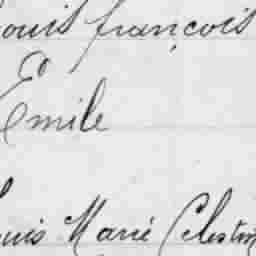 Louis françois
Emile
Louis Marie Celestin